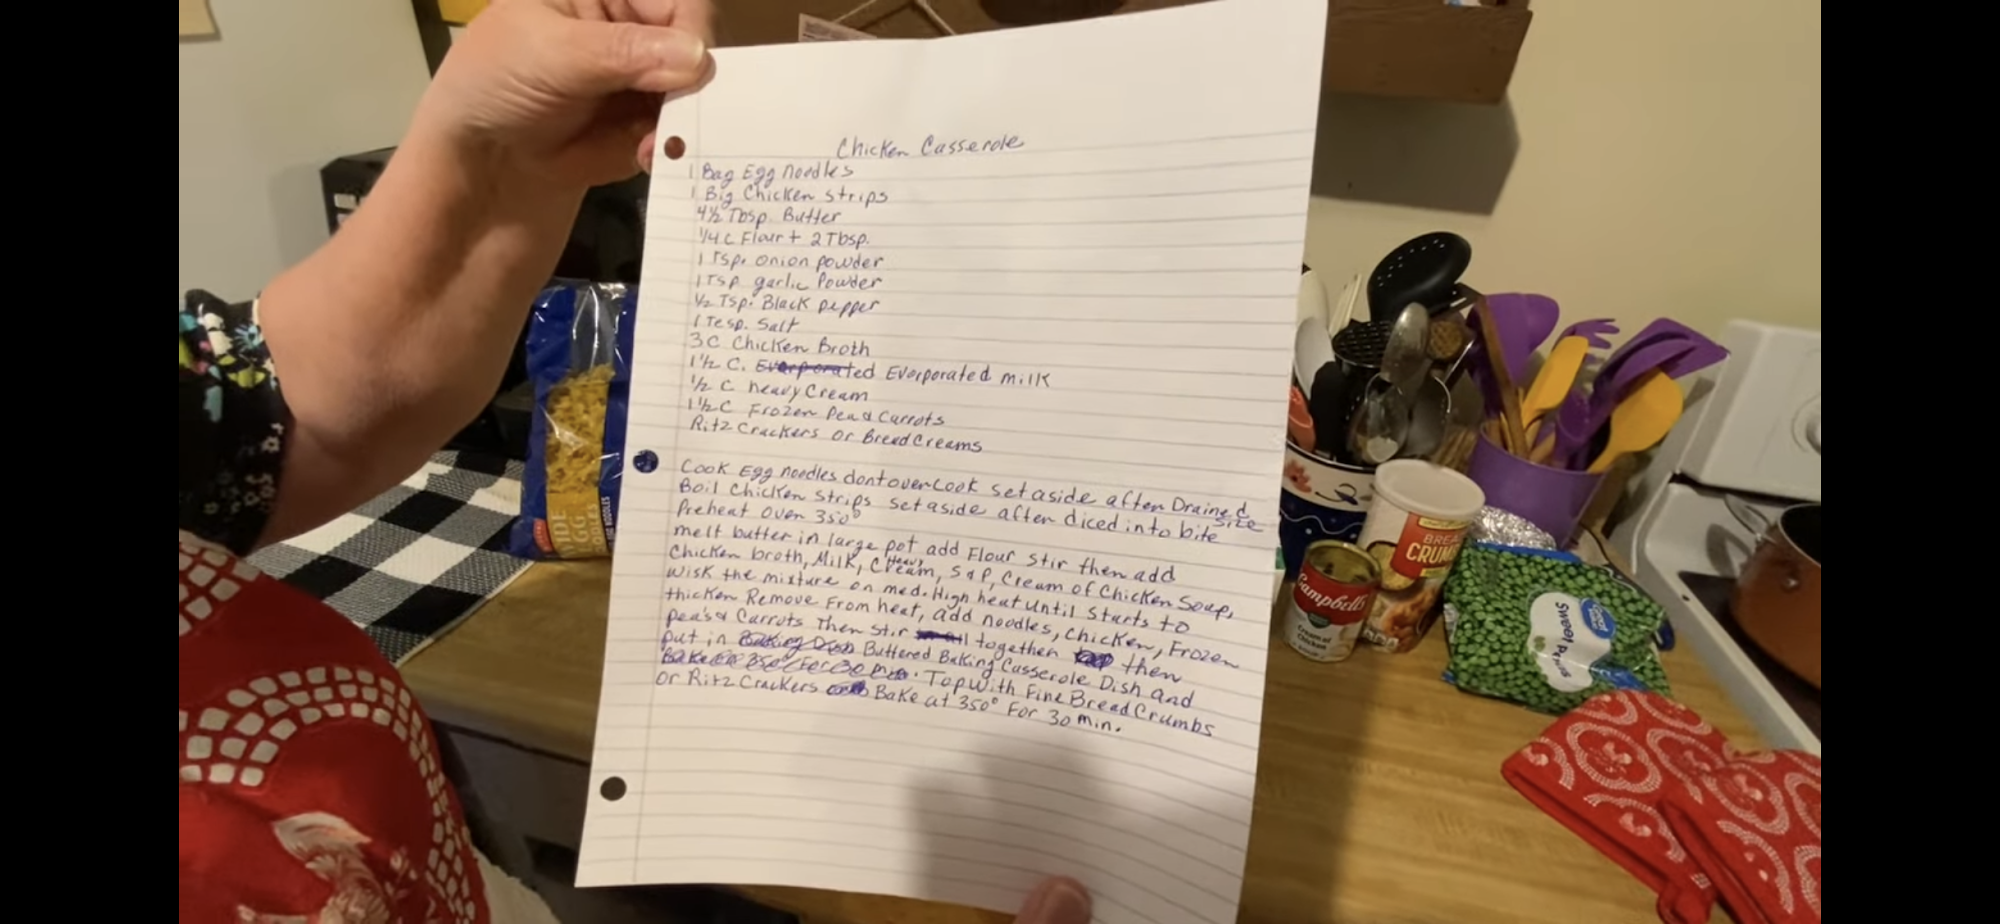 Chicken Casserole
1 Bag Egg noodles
1 Big Chicken strips
4½ Tbsp. Butter
¼ C Flour + 2 Tbsp.
1 Tsp. onion powder
1 Tsp garlic Powder
½ Tsp. Black pepper
1 Tesp. Salt
3 C Chicken Broth
1½ C. Everporated Everporated milk
½ C heavy Cream
1½ C Frozen Pea & Carrots
Ritz Crackers or Bread Creams
Cook Egg noodles dont over Cook set aside after Drained
Boil Chicken strips set aside after diced into bite size
Preheat Oven 350°
melt butter in large pot add Flour stir then add
Chicken broth, Milk, Heavy Cream, S & P, Cream of Chicken Soup,
Wisk the mixture on med. High heat until starts to
thicken Remove From heat, add noodles, Chicken, Frozen
pea's & Carrots Then stir together then
put in Baking Dish Buttered Baking Casserole Dish and
Bake @ 350° For 30 min. Top with Fine Bread Crumbs
or Ritz Crackers Bake at 350° For 30 min.
WIDE
EGG
NOODLES
BREAD
CRUMBS
Campbell's
Cream of
Chicken
Great
Value
Sweet Peas